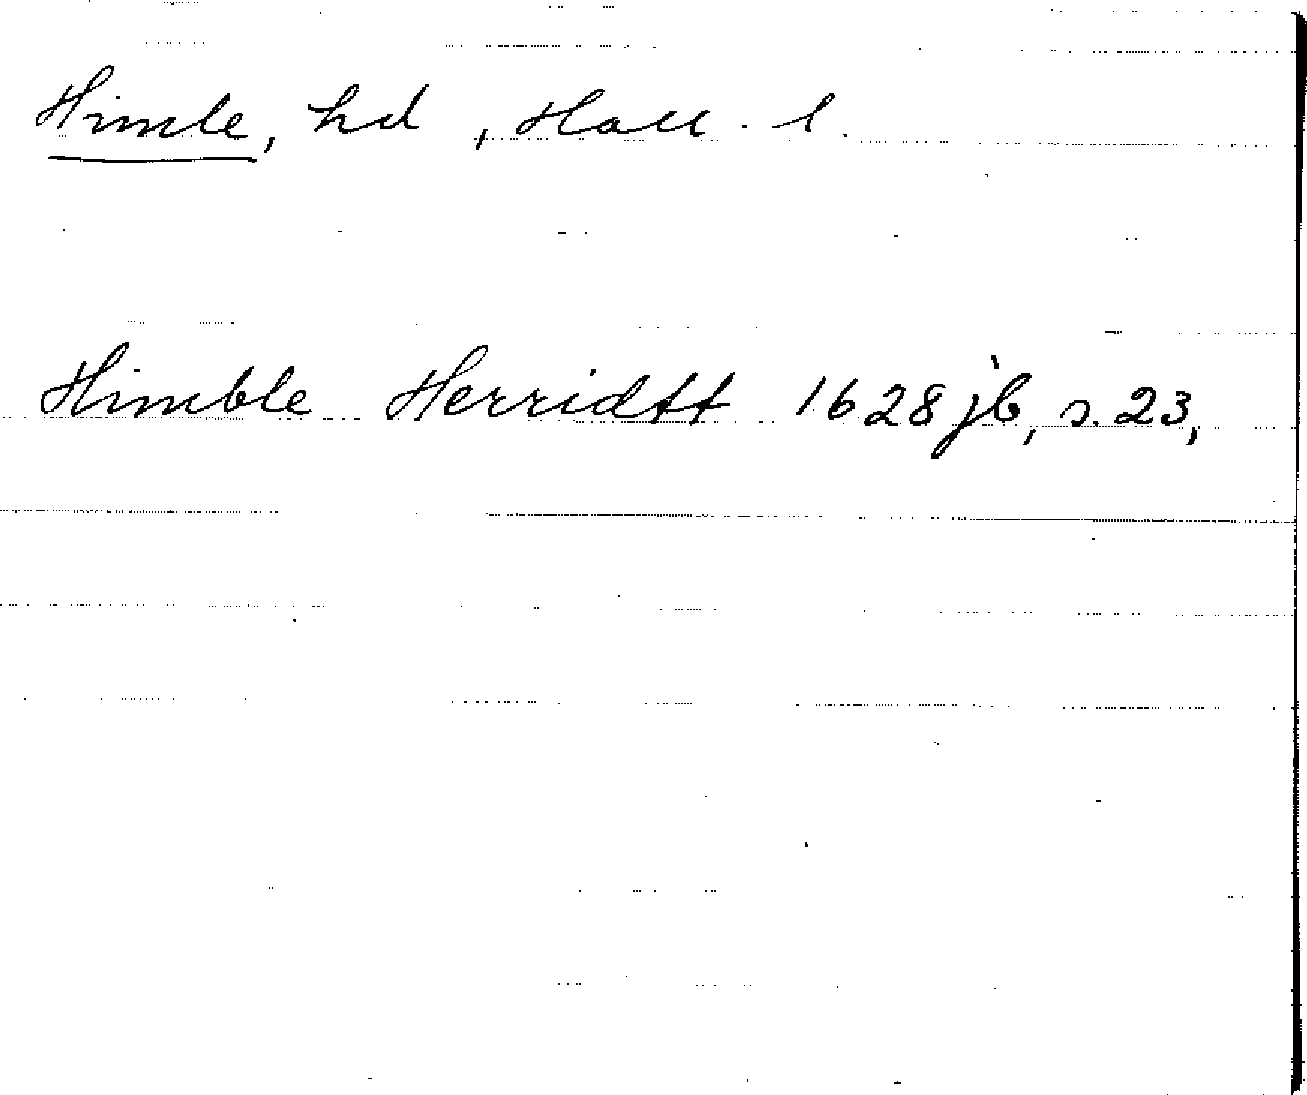 Himle, hd, Hall. l.
Himble Herridtt 1628 jb, s. 23,